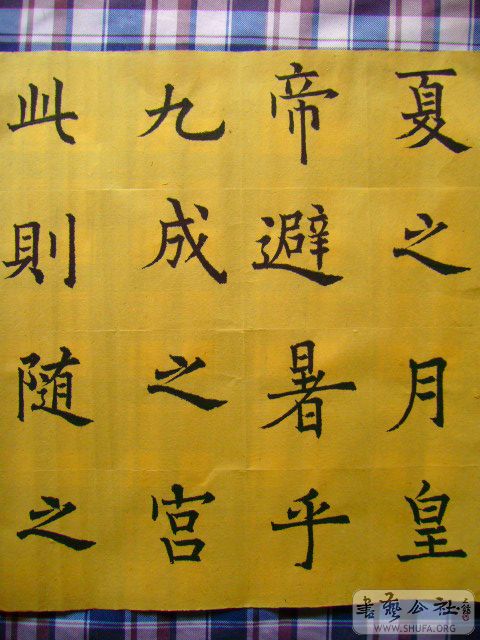 夏之月皇
帝避暑乎
九成之宮
此則随之
書藝公社
WWW.SHUFA.ORG